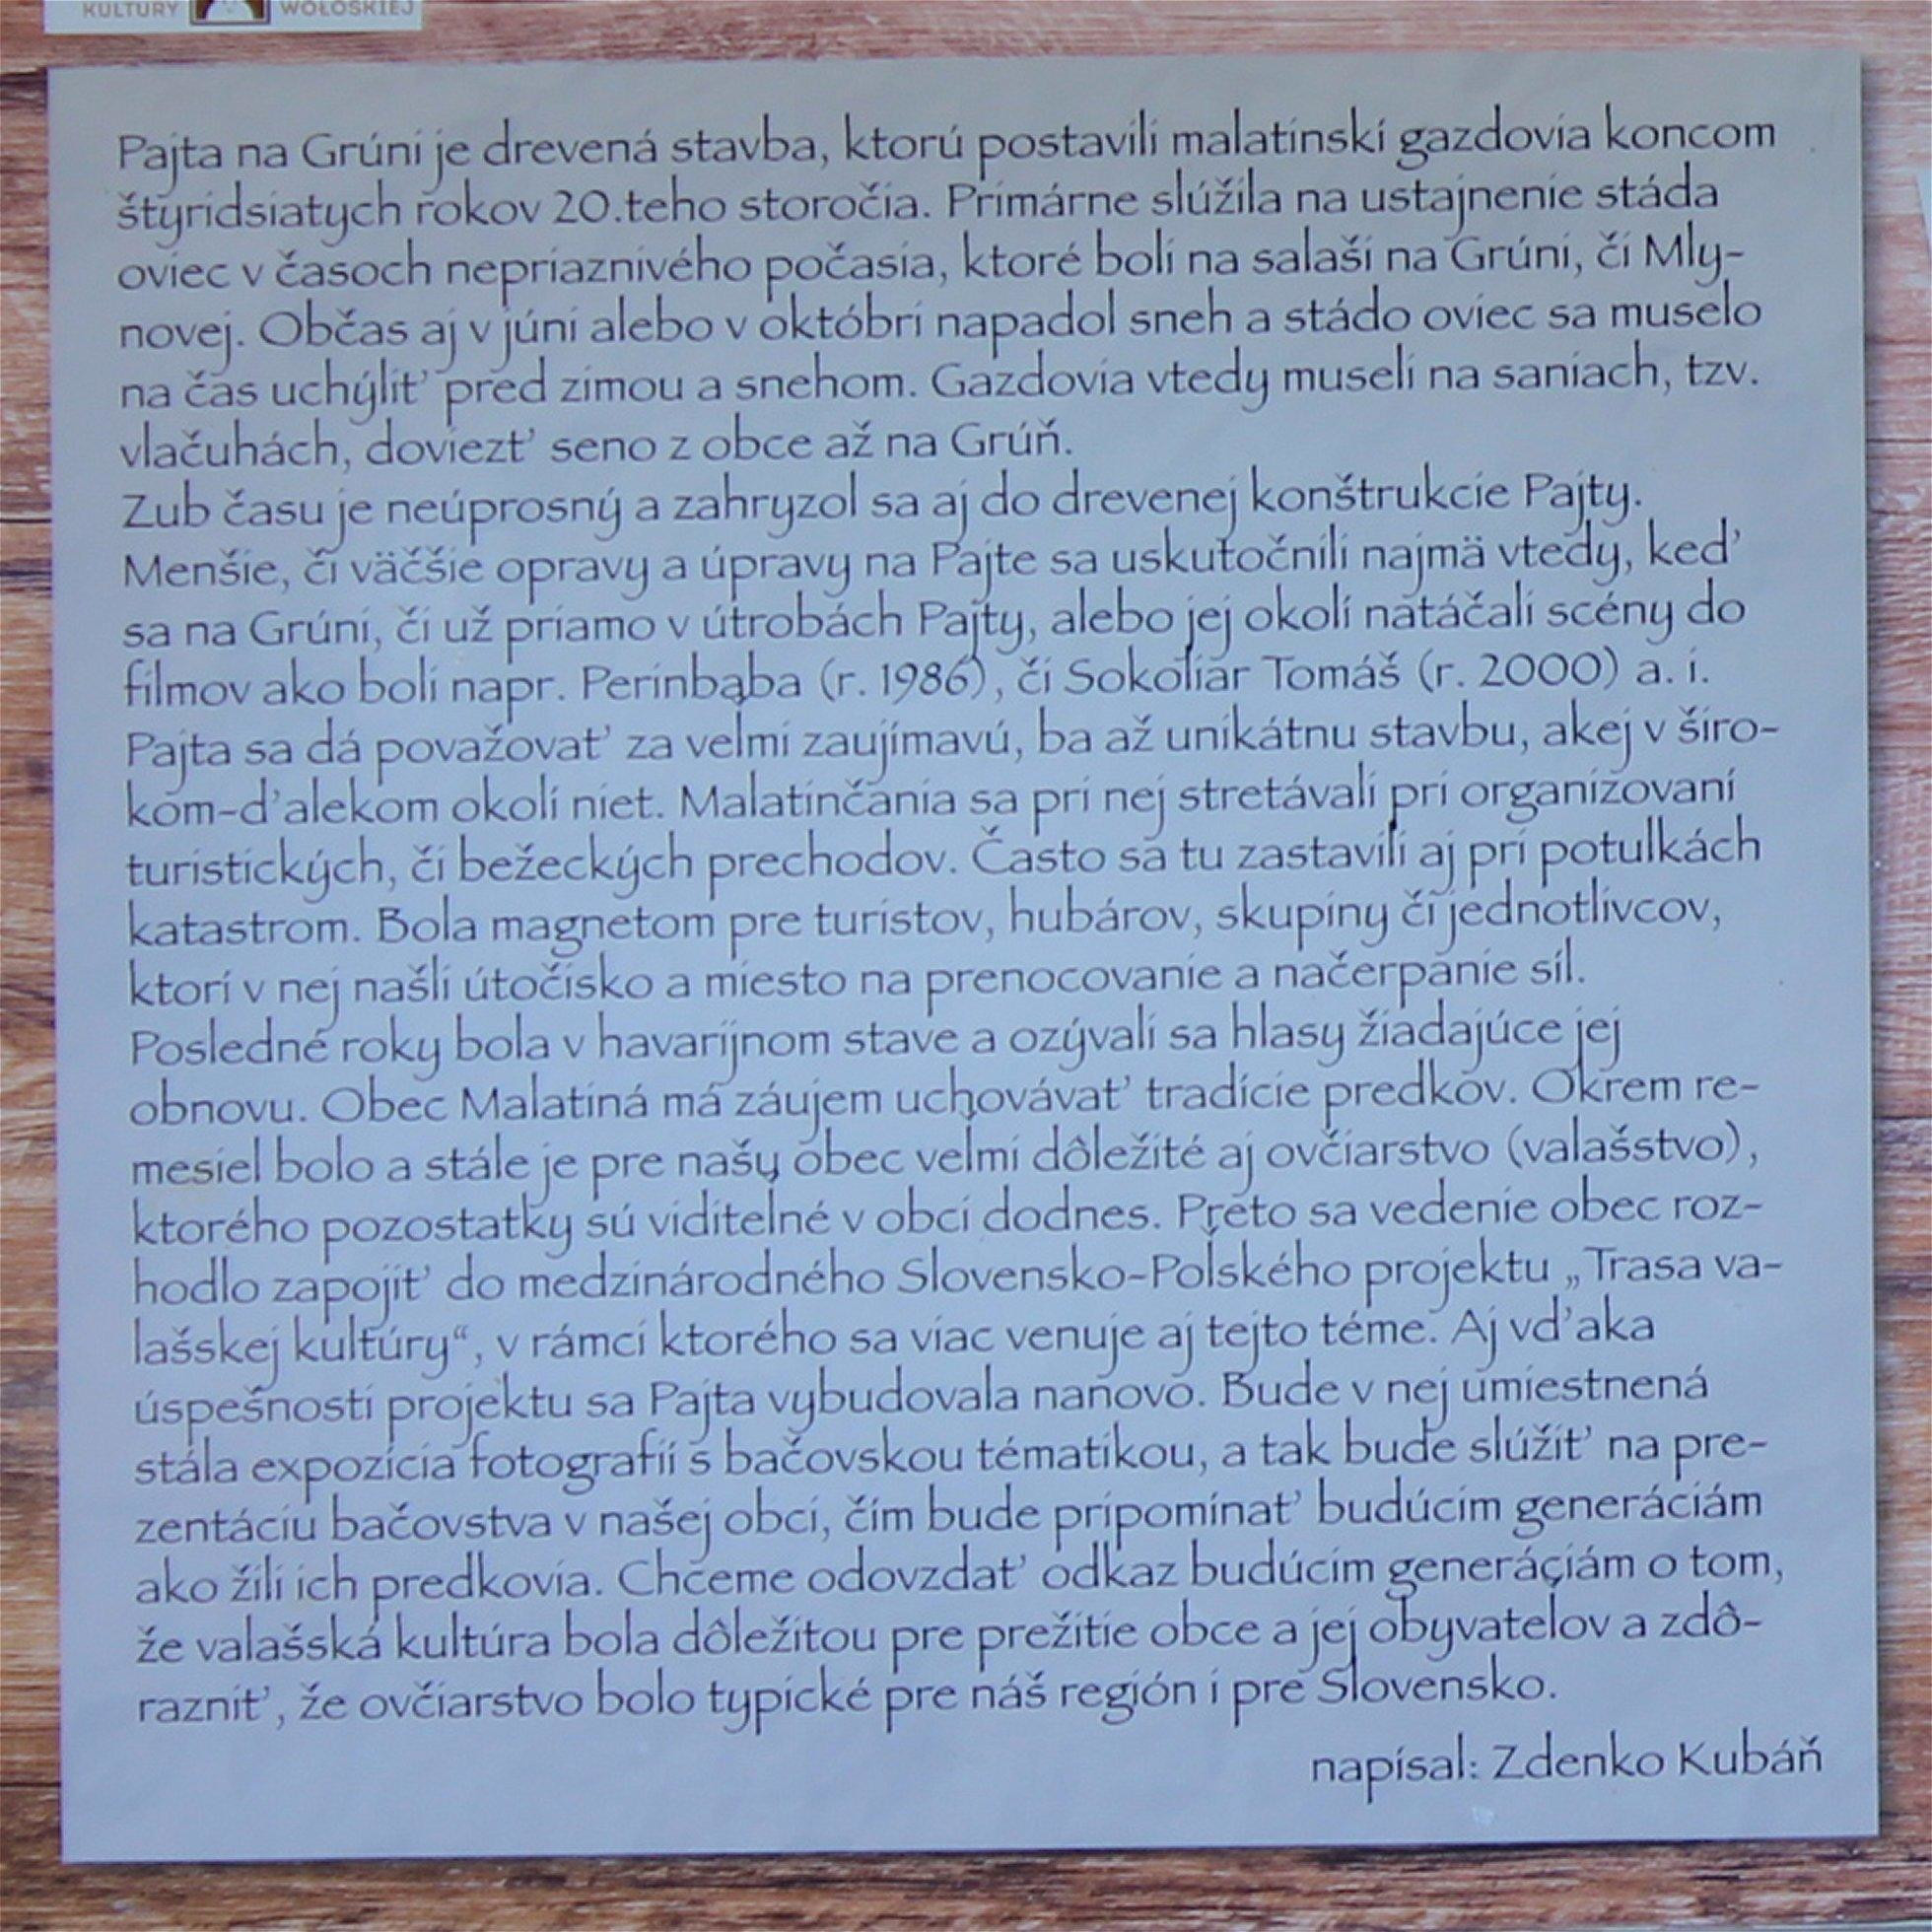 KULTURY WOŁOSKIEJ
Pajta na Grúni je drevená stavba, ktorú postavili malatinski gazdovia koncom
štyridsiatych rokov 20.teho storočia. Primárne slúžila na ustajnenie stáda
oviec v časoch nepriaznivého počasia, ktoré boli na salaši na Grúni, či Mly-
novej. Občas aj v júni alebo v októbri napadol sneh a stádo oviec sa muselo
na čas uchýliť pred zimou a snehom. Gazdovia vtedy museli na saniach, tzv.
vlačuhách, doviezť seno z obce až na Grúň.
Zub času je neúprosný a zahryzol sa aj do drevenej konštrukcie Pajty.
Menšie, či väčšie opravy a úpravy na Pajte sa uskutočnili najmä vtedy, keď
sa na Grúni, či už priamo v útrobách Pajty, alebo jej okolí natáčali scény do
filmov ako boli napr. Perinbaba (r. 1986), či Sokoliar Tomáš (r. 2000) a. i.
Pajta sa dá považovať za velmi zaujímavú, ba až unikátnu stavbu, akej v širo-
kom-ďalekom okolí niet. Malatinčania sa pri nej stretávali pri organizovaní
turistických, či bežeckých prechodov. Často sa tu zastavili aj pri potulkách
katastrom. Bola magnetom pre turistov, hubárov, skupiny či jednotlivcov,
ktorí v nej našli útočisko a miesto na prenocovanie a načerpanie síl.
Posledné roky bola v havarijnom stave a ozývali sa hlasy žiadajúce jej
obnovu. Obec Malatiná má záujem uchovávať tradície predkov. Okrem re-
mesiel bolo a stále je pre našu obec velmi dôležité aj ovčiarstvo (valašstvo),
ktorého pozostatky sú viditelné v obci dodnes. Preto sa vedenie obec roz-
hodlo zapojiť do medzinárodného Slovensko-Polského projektu „Trasa va-
lašskej kultúry“, v rámci ktorého sa viac venuje aj tejto téme. Aj vďaka
úspešnosti projektu sa Pajta vybudovala nanovo. Bude v nej umiestnená
stála expozícia fotografií s bačovskou tématikou, a tak bude slúžiť na pre-
zentáciu bačovstva v našej obci, čím bude pripomínať budúcim generáciám
ako žili ich predkovia. Chceme odovzdať odkaz budúcim generáciám o tom,
že valašská kultúra bola dôležitou pre prežitie obce a jej obyvatelov a zdô-
razniť, že ovčiarstvo bolo typické pre náš región i pre Slovensko.
napísal: Zdenko Kubáň